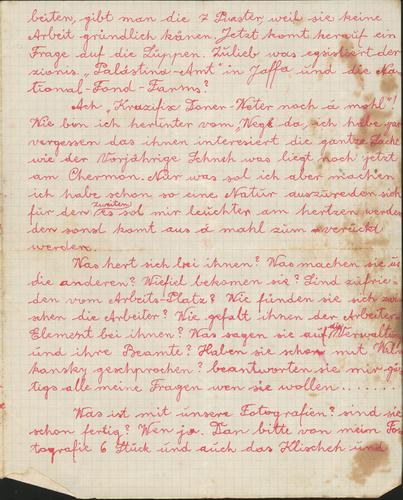 beiten, gibt man die 7 Piaster weil sie keine
Arbeit gründlich känen. Jetzt komt herauf ein
Frage auf die Lüppen. Zülieb was egsistiert der
zionis. „Palästina-Amt" in Jaffa und die Na-
tional-Fond-Farms?
Ach „Kruzifix Doner-Weter noch á mahl"!
Wie bin ich herunter vom „Weg" da, ich habe gar
vergessen das ihnen interesiert die gantze Sache
wie der Vorjährige Schneh was liegt noch jetzt
am Chermon. Nur was sol ich aber machen
ich habe schon so eine Natur auszureden sich
für den zweiten es sol mir leuchter am hertzen werden
den sonst komt aus á mahl zum verückt
werden.
Was hert sich bei ihnen? Was machen sie üs
die anderen? Wiefiel bekomen sie? Sind zufrie-
den vom Arbeits-Platz? Wie fünden sie sich zwi-
schen die Arbeiter? Wie gefalt ihnen der Arbeiter
Element bei ihnen? Was sagen sie auf die Verwaltung
und ihre Beamte? Haben sie schon mit Wil-
kansky geschprochen? beantworten sie mir gü-
tigs alle meine Fragen wen sie wollen ........
Was ist mit unsere Fotografien? sind sie
schon fertig? Wen ja. Dan bitte von mein Fo-
tografie 6 Stück und auch das Klischeh und